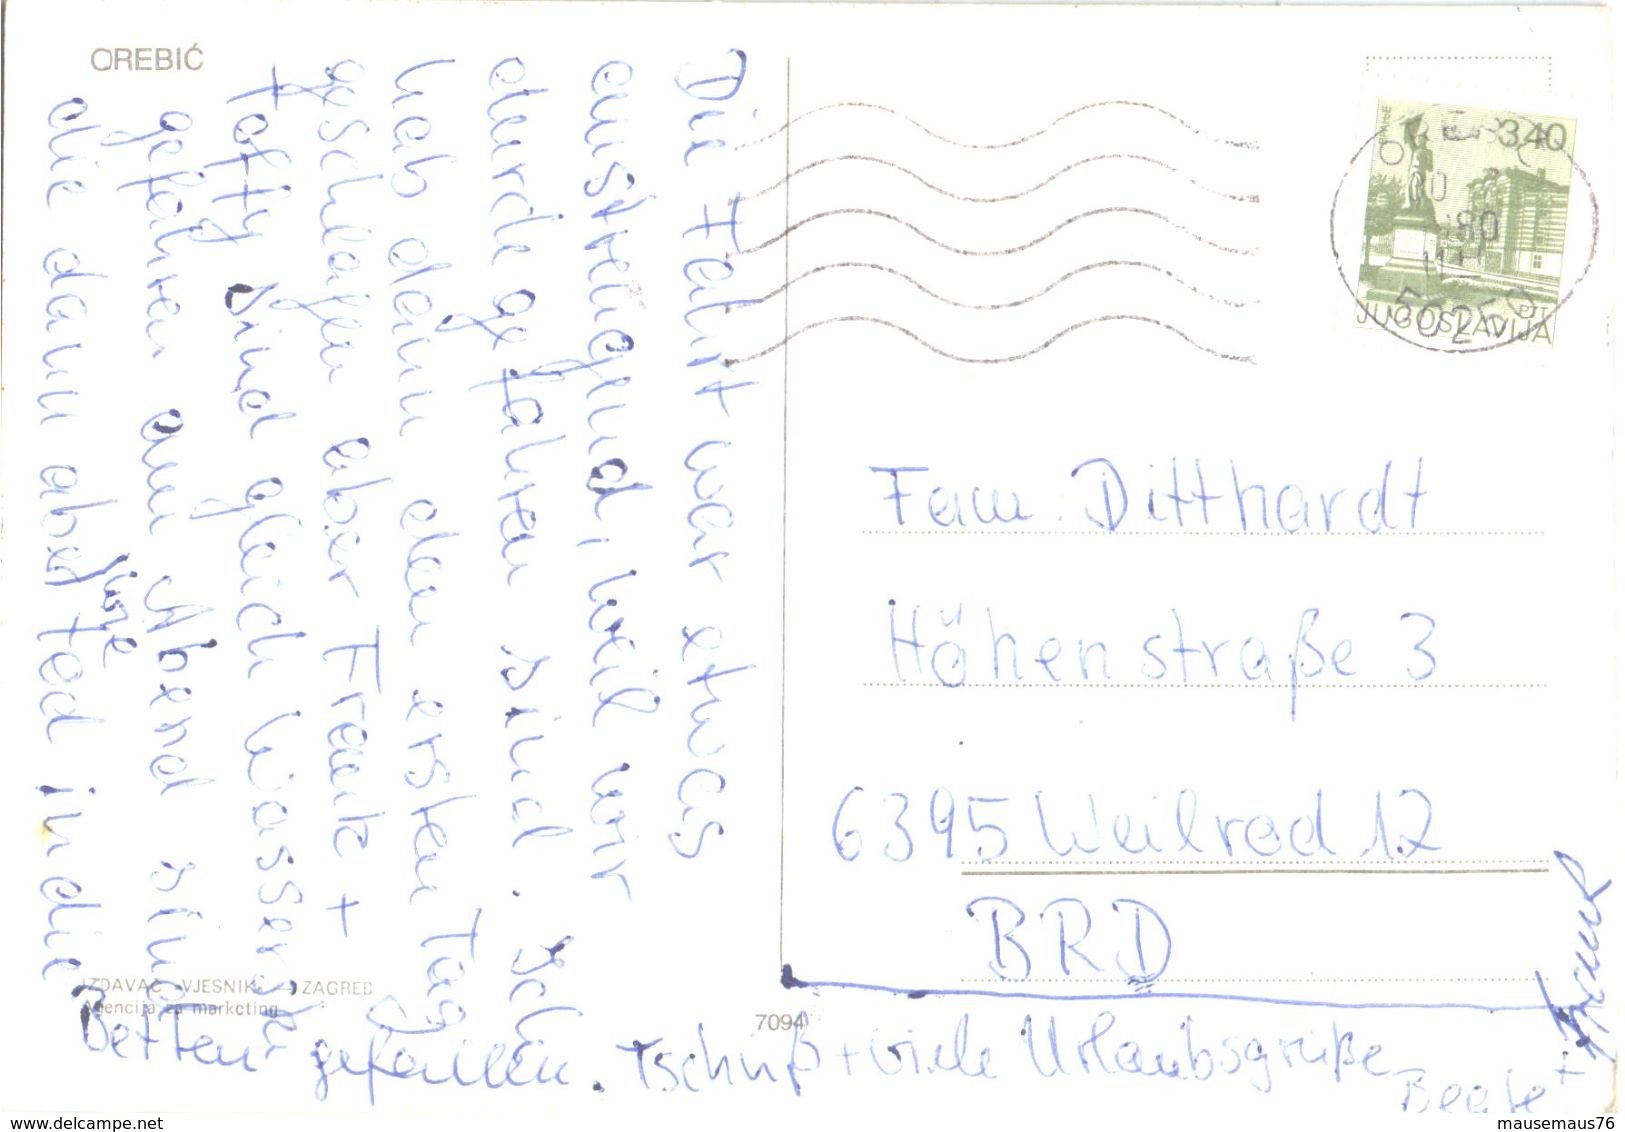 OREBIĆ
Die Fahrt war etwas
anstrengend, weil wir
durchgefahren sind. Ich
hab dann den ersten Tag
geschlafen aber Frank +
Toffy sind gleich Wasserski
gefahren am Abend sind
die dann aber tod in die
Betten gefallen. Tschüß + viele Urlaubsgrüße
Beate +
Frank
IZDAVAČ »VJESNIK« — ZAGREB
Agencija za marketing
7094
ВРАЊЕ
3,40
PTT
JUGOSLAVIJA
OREBIĆ
80
50250
Fam. Ditthardt
Höhenstraße 3
6395 Weilrod 12
BRD
delcampe.net
mausemaus76